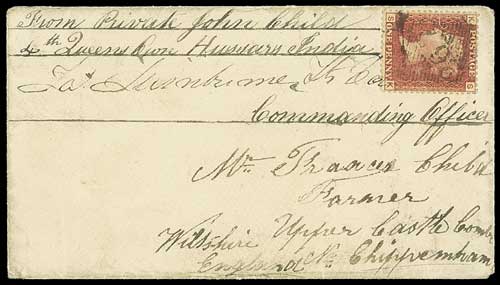 From Private John Child
4th Queens Own Hussars India
Commanding Officer
Mr. Francis Child
Farmer
Upper Castle Combe
Wiltshire Nr. Chippenham
England
POSTAGE
ONE PENNY
S K
K S